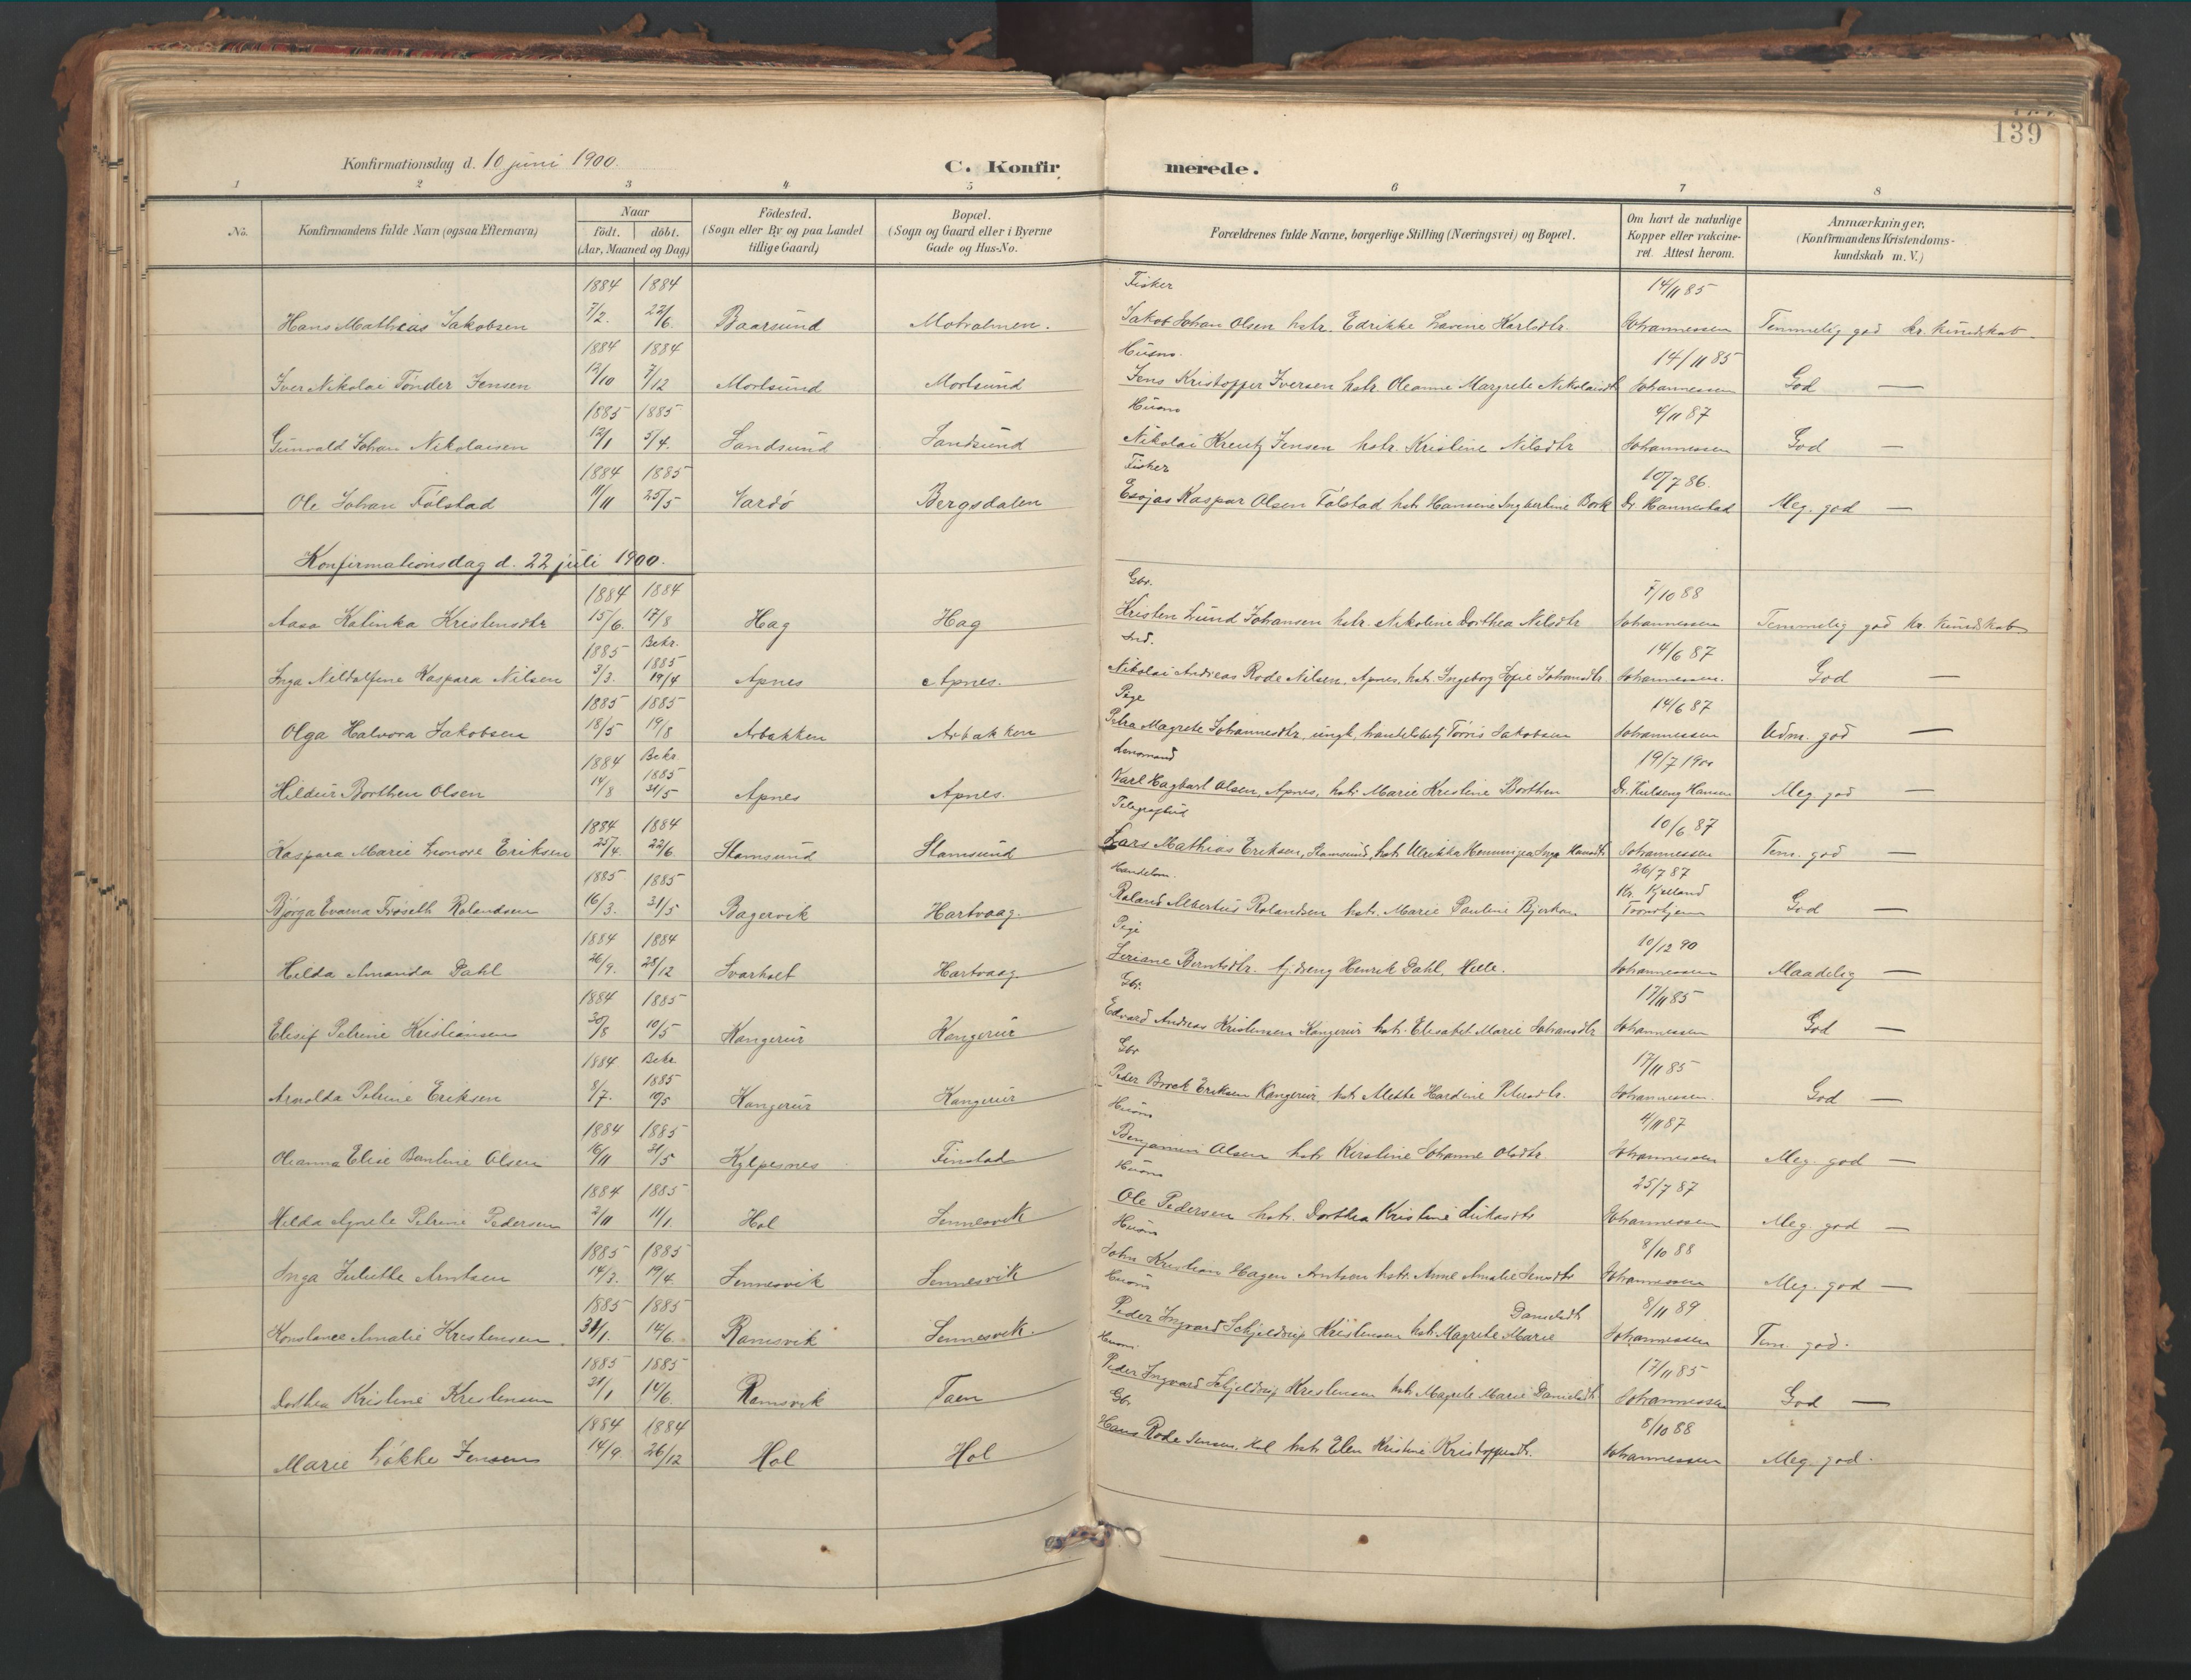 139
Konfirmationsdag d. 10 juni 1900.
C. Konfirmerede.
1 2 3 4 5 6 7 8
No.
Konfirmandens fulde Navn (ogsaa Efternavn)
Naar
födt. döbt.
(Aar, Maaned og Dag)
Födested.
(Sogn eller By og paa Landet
tillige Gaard)
Bopæl.
(Sogn og Gaard eller i Byerne
Gade og Hus-No.
Forældrenes fulde Navne, borgerlige Stilling (Næringsvei) og Bopæl.
Om havt de naturlige
Kopper eller vakcine-
ret. Attest herom.
Anmærkninger.
(Konfirmandens Kristendoms-
kundskab m. V.)
1884 1884 Fisker 14/11 85
Hans Mathias Jakobsen 7/2. 22/6. Baarsund Moholmen. Jakob Johan Olsen hstr. Edrikke Lavine Karlsdtr. Johannessen Temmelig god kr. kundskab
1884 1884 Husm. 14/11 85
Iver Nikolai Tönder Jensen 12/10 7/12 Mortsund Mortsund Jens Kristoffer Iversen hstr. Oleanne Margrete Nikolaisdtr Johannessen God —
1885 1885 Husm 4/11 87
Gunvald Johan Nikolaisen 12/1 5/4. Sandsund Sandsund Nikolai Kreutz Jensen hstr. Kristine Nilsdtr Johannessen God —
1884 1885 Fisker 10/7 86.
Ole Johan Fölstad 11/11 25/5 Vardö Bergsdalen Esajas Kaspar Olsen Fölstad hstr Hansine Ingbertine Bork Dr. Hannestad Meg. god —
Konfirmationsdag d. 22 juli 1900.
1884 1884 Gbr. 7/10 88
Aasa Katinka Kristensdtr 15/6. 17/8 Hag Hag Kristen Lund Johansen hstr. Nikoline Dorthea Nilsdtr Johannessen Temmelig god kr. kundskab
1885 Bekr. 1885 Ind. 14/6 87
Inga Nildalfine Kaspara Nilsen 3/3. 19/4 Apnes Apnes. Nikolai Andreas Rode Nilsen, Apnes, hstr. Ingeborg Sofie Johansdtr. Johannessen. God —
1885 1885 Pige 14/6 87
Olga Halvora Jakobsen 18/5 19/8 Arbakken Arbakken Petra Magrete Johannesdtr, ungk. handelsbetj Törris Jakobsen Johannessen Udm. god —
1884 Bekr. 1885 Lensmand 19/7 1900
Hildur Borthen Olsen 14/8 31/5 Apnes Apnes. Karl Hagbart Olsen, Apnes, hstr Marie Kristine Borthen Dr. Kulseng Hansen Meg. god —
1884 1884 10/6 87
Kaspara Marie Leonore Eriksen 25/4. 22/6. Stamsund Stamsund Lars Mathias Eriksen, Stamsund, hstr Ulrikka Inga Hansdtr Johannessen Tem. god —
1885 1885 Handelsm. 26/7 87
Bjørga Evarna Frøseth Rolandsen 16/3. 31/5 Bagervik Hartvaag. Roland Albertus Rolandsen hstr. Marie Pauline Bjerkan Kr. Kjelland Trondhjem God —
1884 1884 Pige 10/12 90
Hilda Amanda Dahl 26/9. 28/12 Svarholt Hartvaag Seriane Berntsdtr. Henrik Dahl, Helle. Johannessen Maadelig —
1884 1885 Gbr. 17/11 85
Elisif Petrine Kristiansen 30/8 10/5 Kangerur Kangerur Edvard Andreas Kristensen Kangerur hstr. Elisabet Marie Johansdtr Johannessen God —
1884 Bekr. 1885 Gbr 17/11 85
Arnolda Petrine Eriksen 8/7. 10/5 Kangerur Kangerur Peder Brock Eriksen Kangerur, hstr Mette Hardine Petersdtr. Johannessen. God —
1884 1885 Husm 4/11 87
Oleanna Elise Bentine Olsen 16/11 31/5 Kylpesnes Finstad Benjamin Olsen hstr Kirstine Johanne Olsdtr Johannessen Meg. god —
1884 1885 Husm 25/7 87
Hilda Agnete Petrine Pedersen 2/11 11/1. Hol Sennesvik Ole Pedersen hstr. Dorthea Kristine Lukasdtr Johannessen Meg. god —
1885 1885 Husm 8/10 88
Inga Juliette Arntsen 14/3. 19/4. Sennesvik Sennesvik John Kristian Hagen Arntsen hstr. Anne Amalie Jensdtr Johannessen Meg. god —
1885 1885 Husm 8/11 89
Konstance Amalie Kristensen. 31/1. 14/6. Ramsvik Sennesvik. Peder Ingvard Schjelderup Kristensen hstr. Magrete Marie Danielsdtr Johannessen Tem. god.
1885 1885 Husm 17/11 85
Dorthea Kristine Kristensen 31/1 14/6. Ramsvik Taen Peder Ingvard Schjelderup Kristensen hstr Magrete Marie Danielsdtr. Johannessen God —
1884 1884 Gbr 8/10 88
Marie Løkke Jensen 14/9. 26/12 Hol Hol Hans Rode Jensen, Hol hstr Elen Kristine Kristoffersdtr. Johannessen Meg. god.